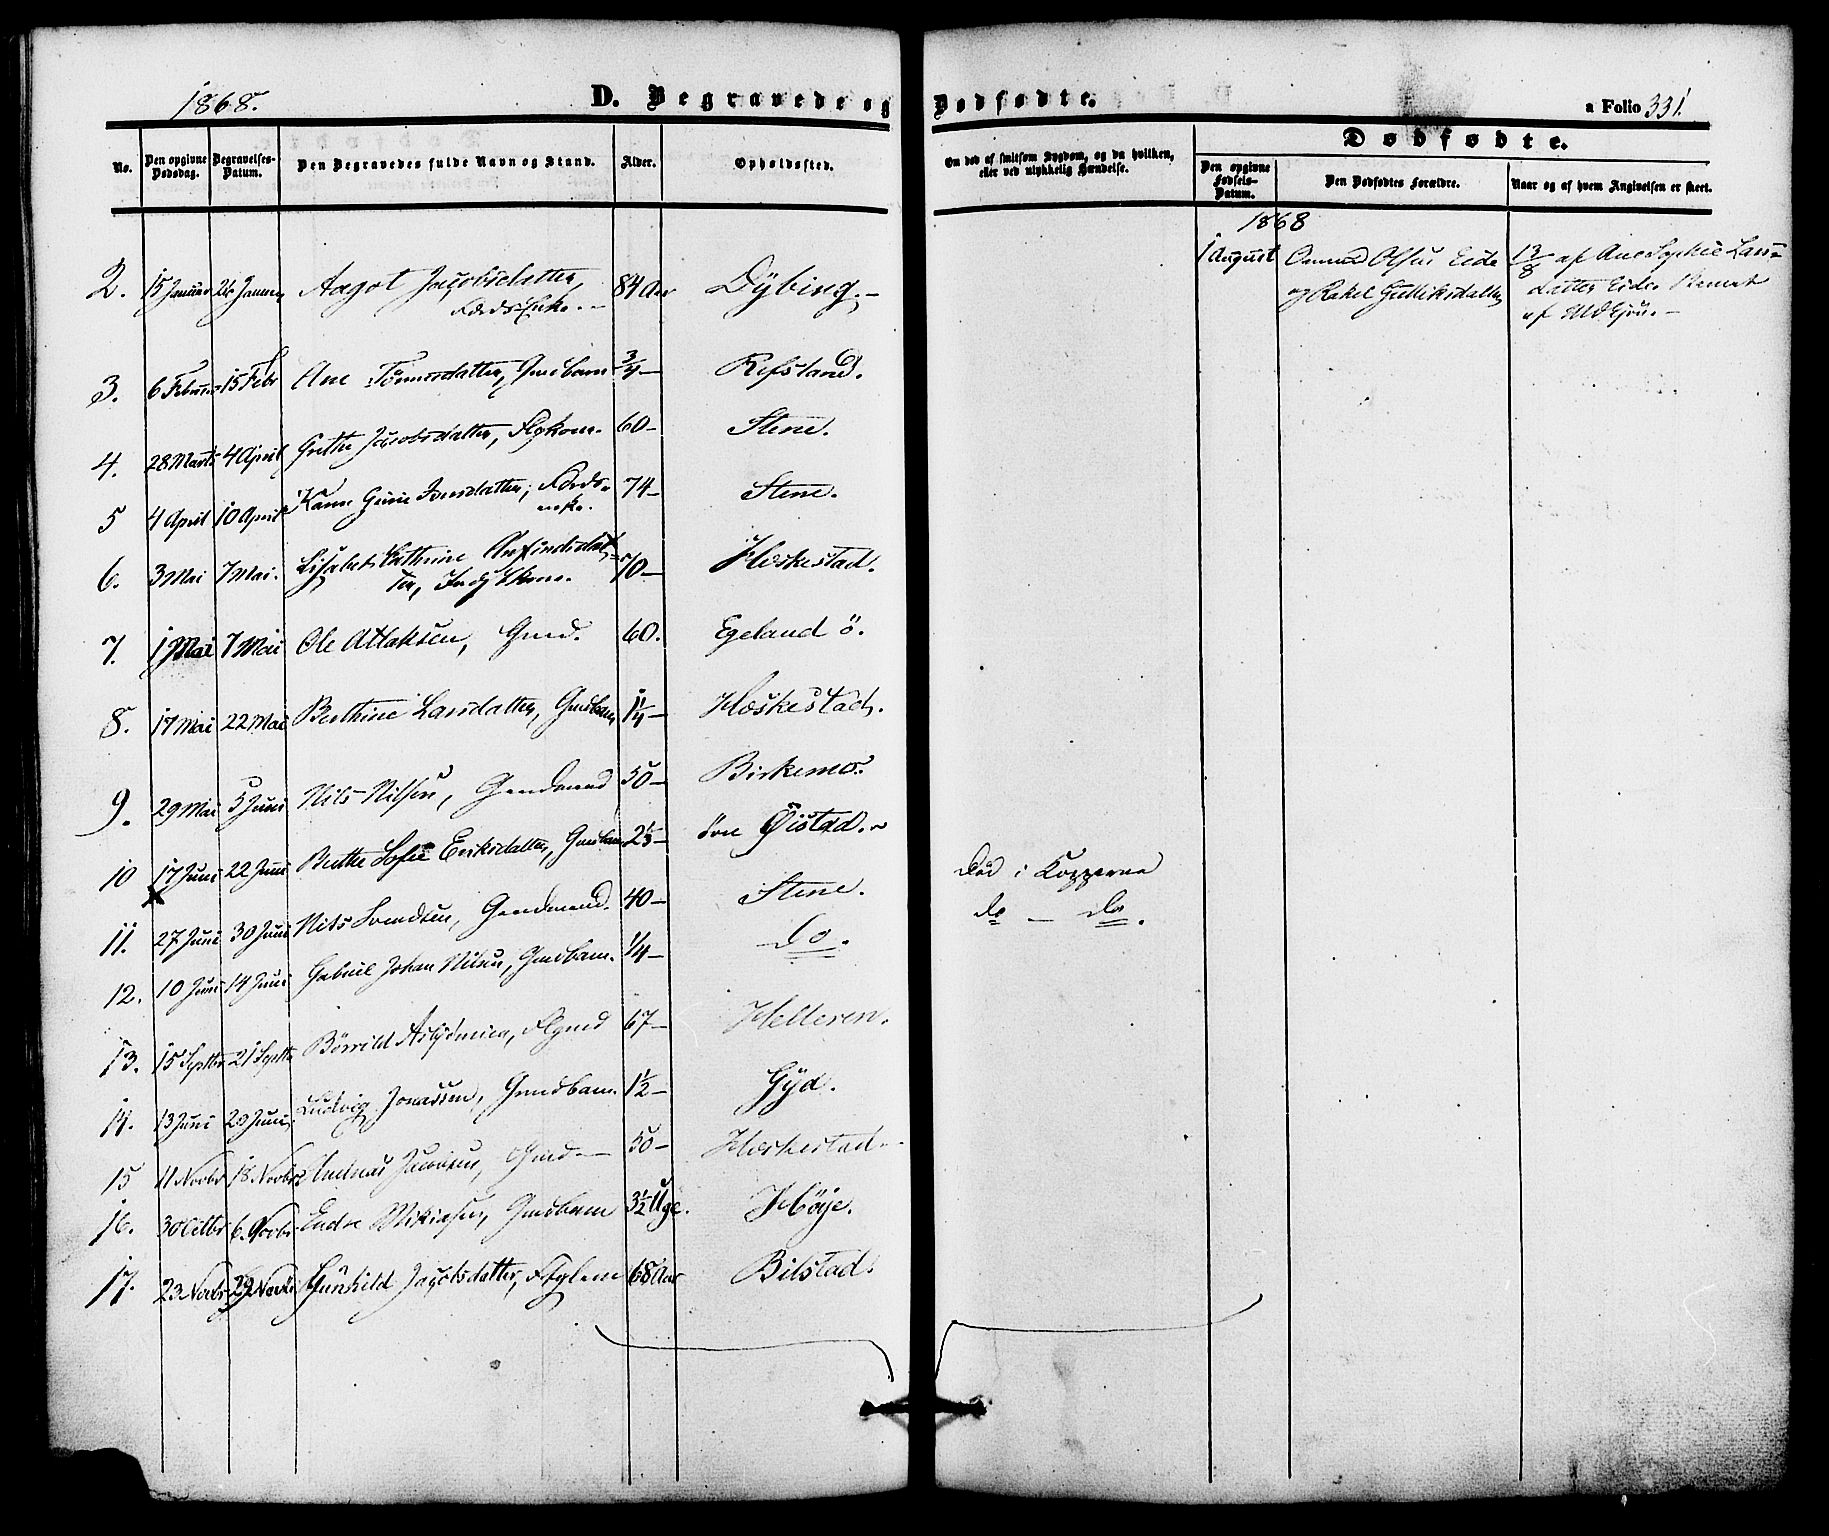 1868.
D. Begravede og Dødfødte.
a Folio 331.
No.
Den opgivne Dødsdag.
Begravelses-Datum.
Den Begravedes fulde Navn og Stand.
Alder.
Opholdssted.
Om død af smitsom Sygdom, og da hvilken, eller ved ulykkelig Hændelse.
Dødfødte.
Den opgivne Fødsels-Datum.
Den Dødfødtes Forældre.
Naar og af hvem Angivelsen er skeet.
1868
2. 15 Januar 26 Januar Aagot Jacobsdatter, 84 Aar Dybing.-
1 August Olsen Eide 13/8 af Ane Sophie Lars=
og Rakel Gulliksdatter datter Eide.
3. 6 Februar 15 Febr Ane Tönnesdatter, Gmdbarn 3/4 - Refsland.
4. 28 Marts 4 April Grethe Jacobsdatter, 60 - Stene.
5 4 April 10 April 74 - Stene.
6. 3 Mai 7 Mai. Lisabet Kathrine Anfindsdat=
ter, 70 - Hæskestad.
7. 1 Mai 7 Mai Ole Atlaksen, Gmd. 60. Egeland ö.
8. 17 Mai 22 Mai Berthine Larsdatter, Gmdbarn 1 1/4 - Hæskestad.
9. 29 Mai 5 Juni Nils Nilsen, Gaardmand 50 - Birkemo.
10 17 Juni 22 Juni Berthe Sofie Eriksdatter, Gmdbarn Öistad.
Död i Kopperne
11. 27 Juni 30 Juni Nils Svendsen, Gaardmand. 40 - Stene.
do - do.
12. 10 Juni 14 Juni Gabriel Johan Nilsen, Gmdbarn. 1/4 - do.
13. 15 Septbr 21 Septbr 67 - Helleren.
14. 13 Juni 20 Juni, Ludvig Jonassen, Gmdbarn. 1 1/2 - Gyd.
15 11 Novbr 18 Novbr Andreas Jacobsen, Gmd - 50 - Hæskestad.
16. 30 Octbr 6. Novbr Endre Mikiasen, Gmdbarn 3 1/2 Uge. Höje.
17. 23 Novbr 29 Novbr Gunhild Jacobsdatter, 68 Aar Bilstad.